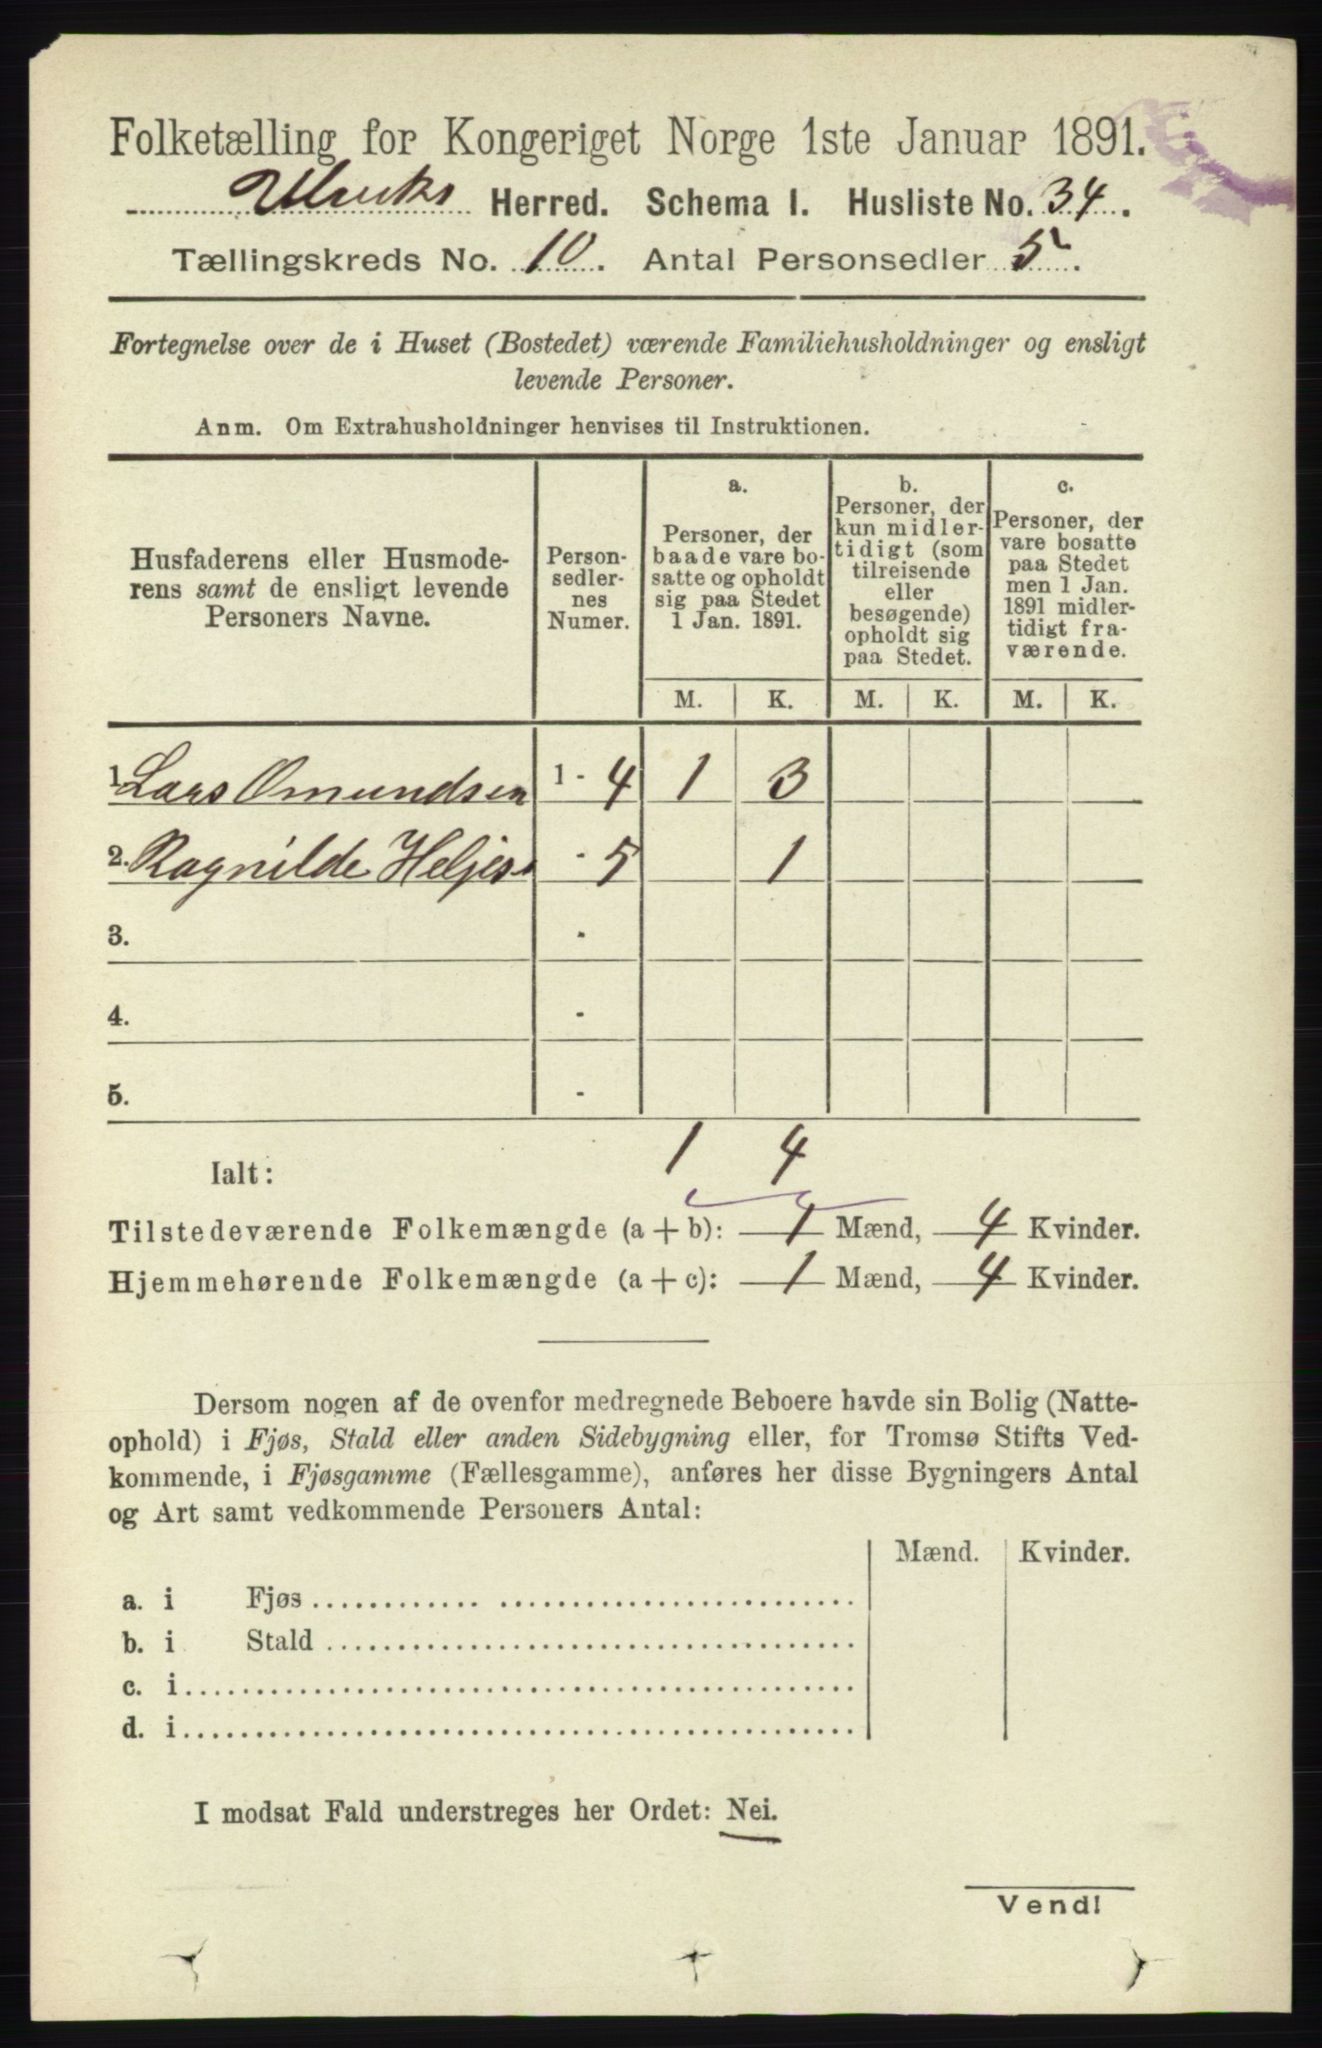 Folketælling for Kongeriget Norge 1ste Januar 1891.
Herred. Schema I. Husliste No. 34.
Tællingskreds No. 10. Antal Personsedler 5.
Fortegnelse over de i Huset (Bostedet) værende Familiehusholdninger og ensligt
levende Personer.
Anm. Om Extrahusholdninger henvises til Instruktionen.
Husfaderens eller Husmode-
rens samt de ensligt levende
Personers Navne.
Person-
sedler-
nes
Numer.
a.
Personer, der
baade vare bo-
satte og opholdt
sig paa Stedet
1 Jan. 1891.
b.
Personer, der
kun midler-
tidigt (som
tilreisende
eller
besøgende)
opholdt sig
paa Stedet.
c.
Personer, der
vare bosatte
paa Stedet
men 1 Jan.
1891 midler-
tidigt fra-
værende.
M. K. M. K. M. K.
1. Lars Omundsen 1 - 4 1 3
2. Ragnilde Heljes - 5 1
3. -
4. -
5. -
Ialt: 1 4
Tilstedeværende Folkemængde (a + b): 1 Mænd, 4 Kvinder.
Hjemmehørende Folkemængde (a + c): 1 Mænd, 4 Kvinder.
Dersom nogen af de ovenfor medregnede Beboere havde sin Bolig (Natte-
ophold) i Fjøs, Stald eller anden Sidebygning eller, for Tromsø Stifts Ved-
kommende, i Fjøsgamme (Fællesgamme), anføres her disse Bygningers Antal
og Art samt vedkommende Personers Antal:
Mænd. Kvinder.
a. i Fjøs
b. i Stald
c. i
d. i
I modsat Fald understreges her Ordet: Nei.
Vend!